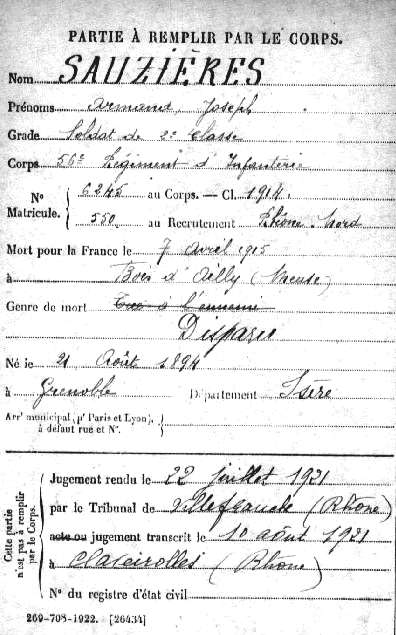 PARTIE À REMPLIR PAR LE CORPS.
Nom SAUZIÈRES
Prénoms Armand, Joseph
Grade Soldat de 2e Classe
Corps 56e Régiment d'Infanterie
N° Matricule. 6245 au Corps. — Cl. 1914.
550 au Recrutement Rhône Nord
Mort pour la France le 7 Avril 1915
à Bois d'Ailly (Meuse)
Genre de mort Tué à l'ennemi
Disparu
Né le 21 Août 1894
à Grenoble Département Isère
Arrt municipal (pr Paris et Lyon),
à défaut rue et N°.
Cette partie n'est pas à remplir par le Corps.
Jugement rendu le 22 juillet 1921
par le Tribunal de Villefranche (Rhône)
acte ou jugement transcrit le 10 août 1921
à (Rhône)
N° du registre d'état civil
269-708-1922. [26434]